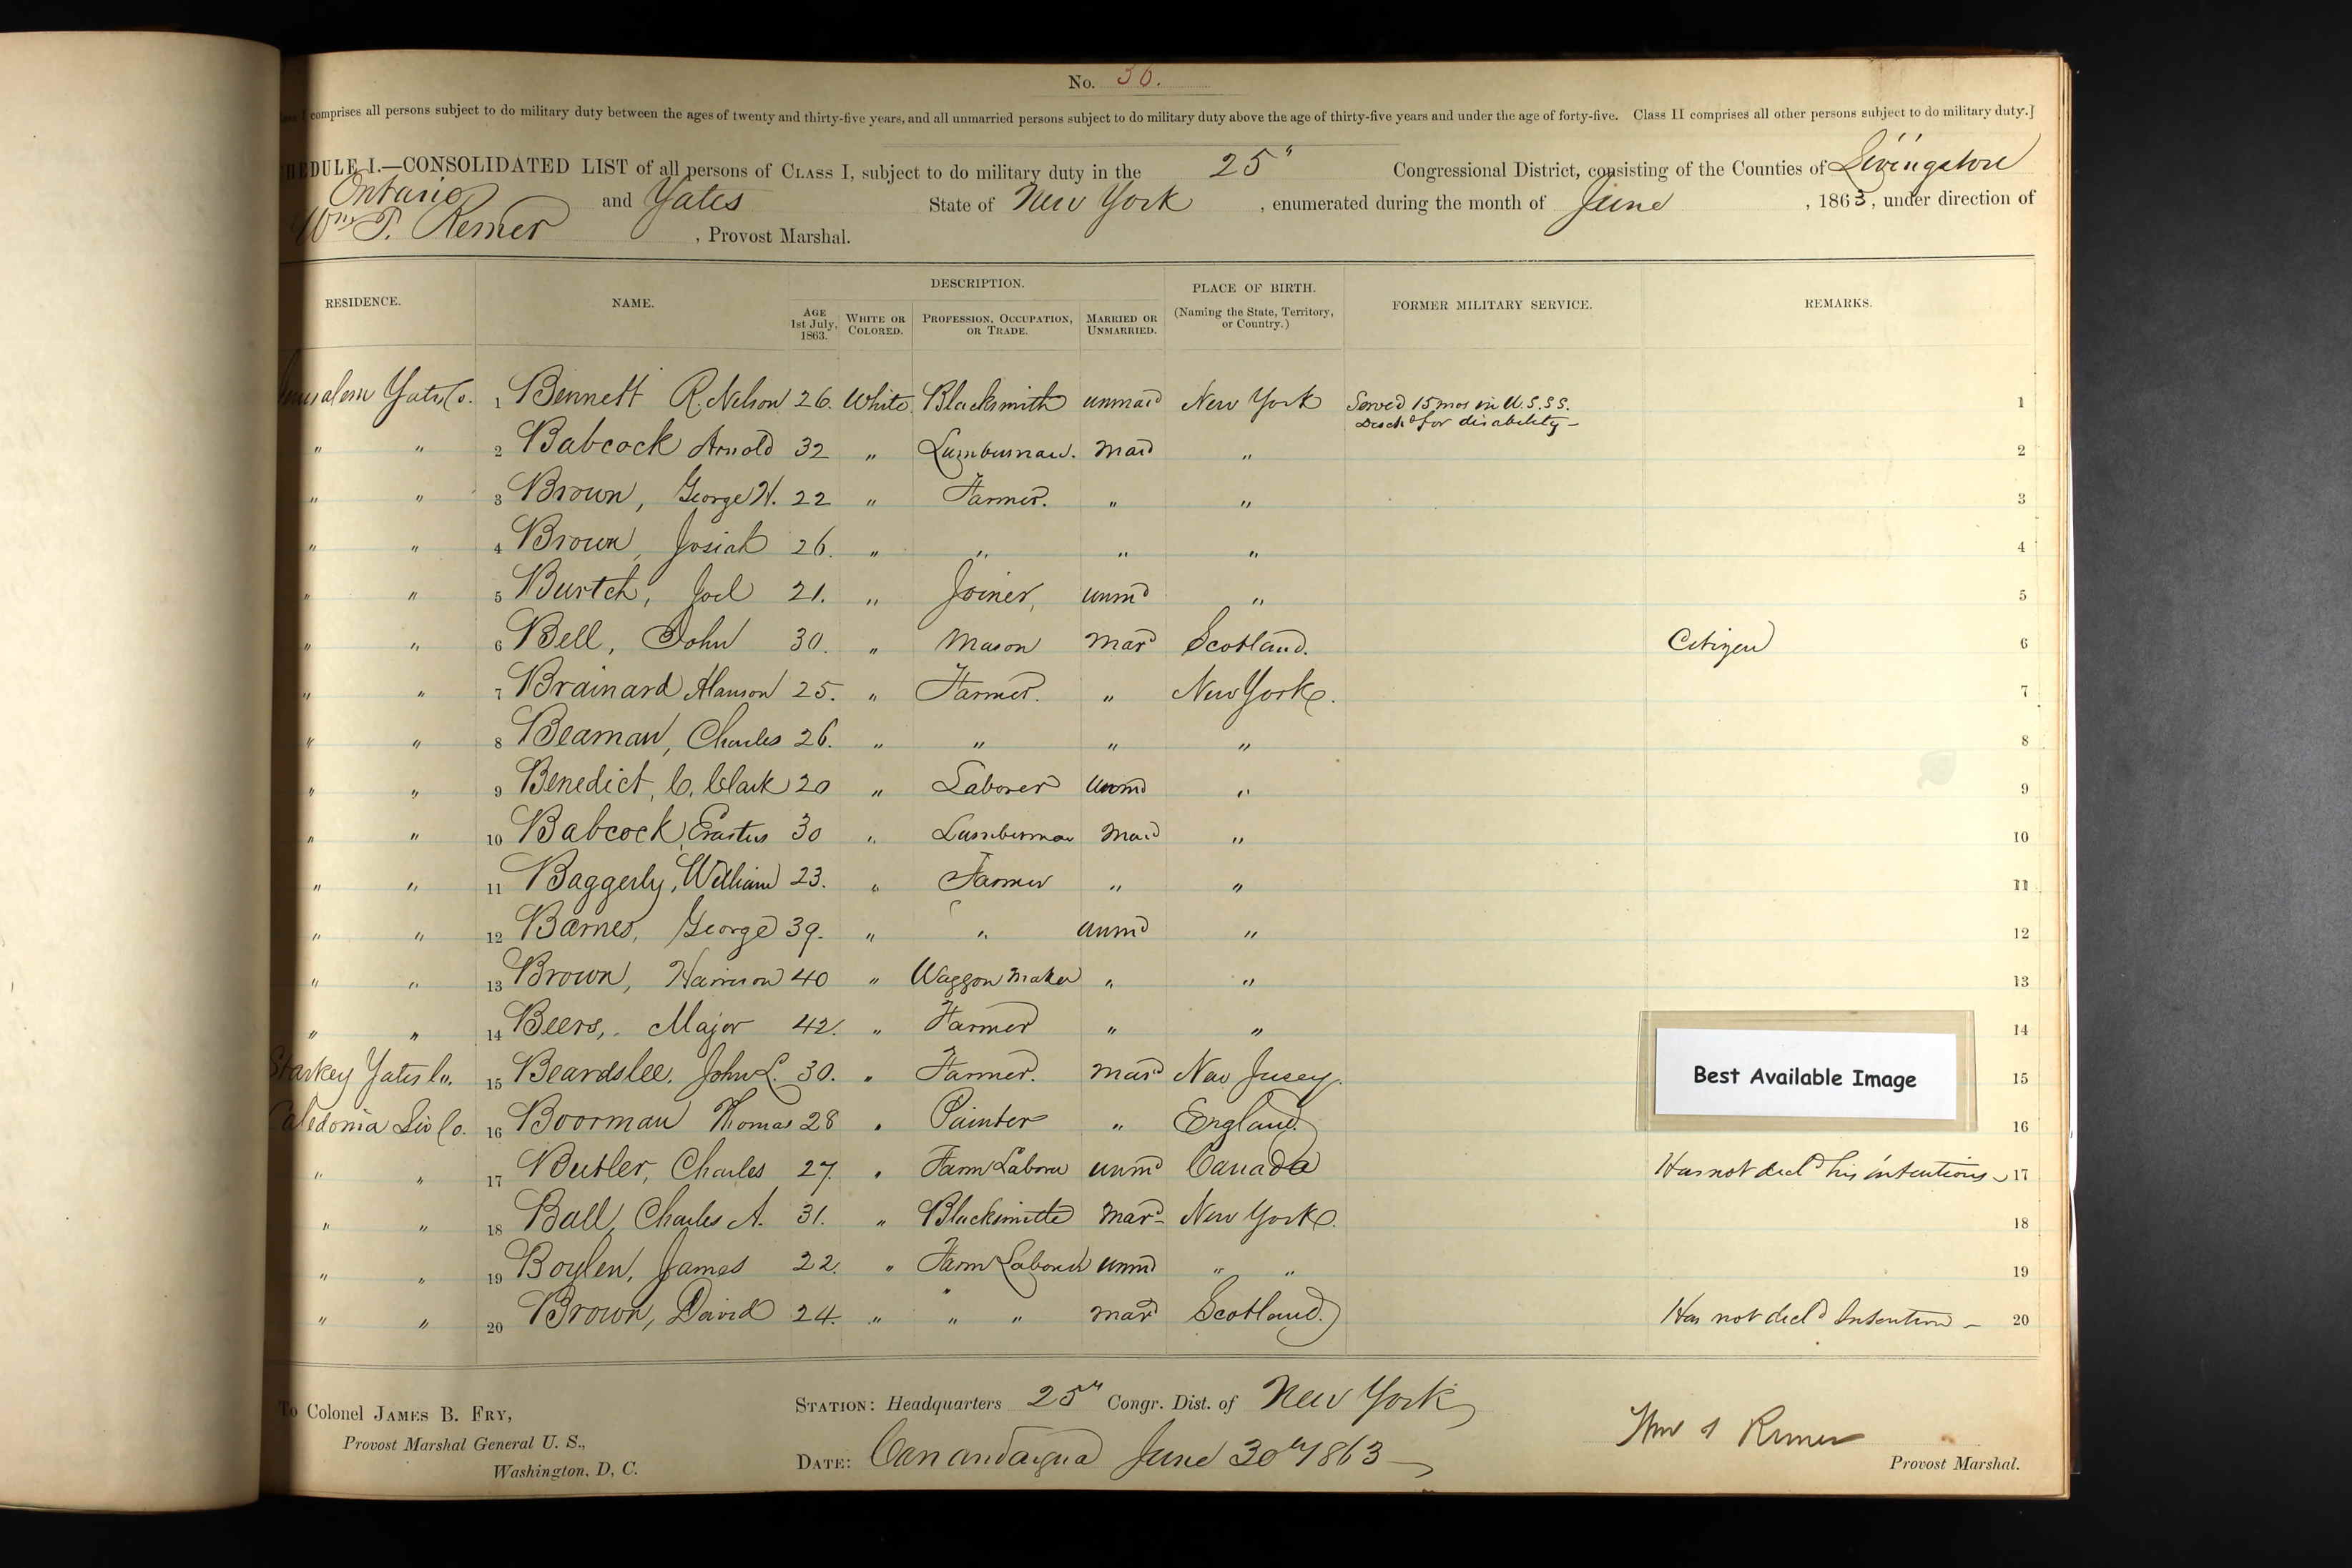 No. 36.
comprises all persons subject to do military duty between the ages of twenty and thirty-five years, and all unmarried persons subject to do military duty above the age of thirty-five years and under the age of forty-five. Class II comprises all other persons subject to do military duty.]
HEDULE I.—CONSOLIDATED LIST of all persons of CLASS I, subject to do military duty in the 25" Congressional District, consisting of the Counties of Livingston
Ontario and Yates State of New York, enumerated during the month of June, 1863, under direction of
Wm P. Remer, Provost Marshal.
RESIDENCE. NAME. DESCRIPTION. PLACE OF BIRTH. FORMER MILITARY SERVICE. REMARKS.
AGE 1st July, 1863. WHITE OR COLORED. PROFESSION, OCCUPATION, OR TRADE. MARRIED OR UNMARRIED. (Naming the State, Territory, or Country.)
Yates Co. 1 Bennett R. Nelson 26. White Blacksmith unmard New York Served 15 mos in U.S.S.S. 1
Dischd for disability —
" " 2 Babcock Arnold 32 " Lumberman. mard " 2
" " 3 Brown, George H. 22 " Farmer. " " 3
" " 4 Brown, Josiah 26. " " " " 4
" " 5 Burtch, Joel 21. " Joiner, unmd " 5
" " 6 Bell, John 30. " Mason mard Scotland. Citizen 6
" " 7 Brainard Alanson 25. " Farmer. " New York. 7
" " 8 Beaman, Charles 26. " " " " 8
" " 9 Benedict, C. Clark 20 " Laborer unmd " 9
" " 10 Babcock, Erastus 30 " Lumberman mard " 10
" " 11 Baggerly, William 23. " Farmer " " 11
" " 12 Barnes, George 39. " " unmd " 12
" " 13 Brown, Harrison 40 " Waggon maker " " 13
" " 14 Beers, Major 42. " Farmer " " 14
Starkey Yates Co. 15 Beardslee, John L. 30. " Farmer. mard New Jersey. 15
Best Available Image
Caledonia Liv Co. 16 Boorman Thomas 28 " Painter " England. 16
" " 17 Butler, Charles 27. " Farm Laborer unmd Canada Has not decld his intentions — 17
" " 18 Ball, Charles A. 31. " Blacksmith mard — New York. 18
" " 19 Boylen, James 22. " Farm Laborer unmd " " 19
" " 20 Brown, David 24. " " " mard Scotland. Has not decld Intention — 20
To Colonel JAMES B. FRY,
Provost Marshal General U. S.,
Washington, D, C.
STATION: Headquarters 25th Congr. Dist. of New York
DATE: Canandaigua June 30th 1863
Wm P Remer
Provost Marshal.